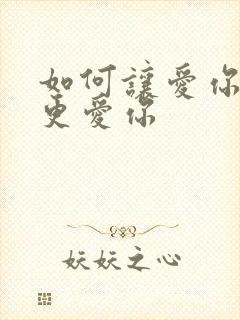 如何讓愛你
更愛你
妖妖之心